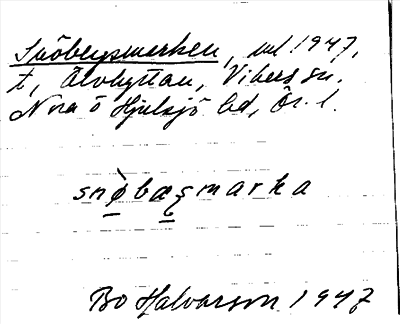 Snöbergsmarken, utl. 1947,
t, Älvhyttan, Vikers sn.
Nora o Hjulsjö bd, Ör. l.
snø̀bæʂmarka
Bo Halvarson 1947